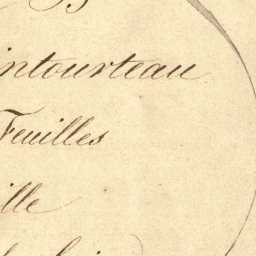 B
intourteau
Feuilles
ille